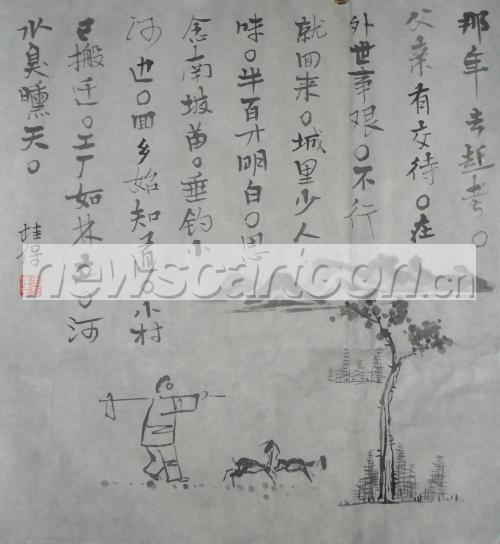 那年去赶考。
父亲有交待。在
外世事艰。不行
就回来。城里少人
味。半百才明白。思
念南坡苗。垂钓小
河边。回乡始知道。小村
已搬迁。工厂如林立。河
水臭曛天。
newscollection.cn